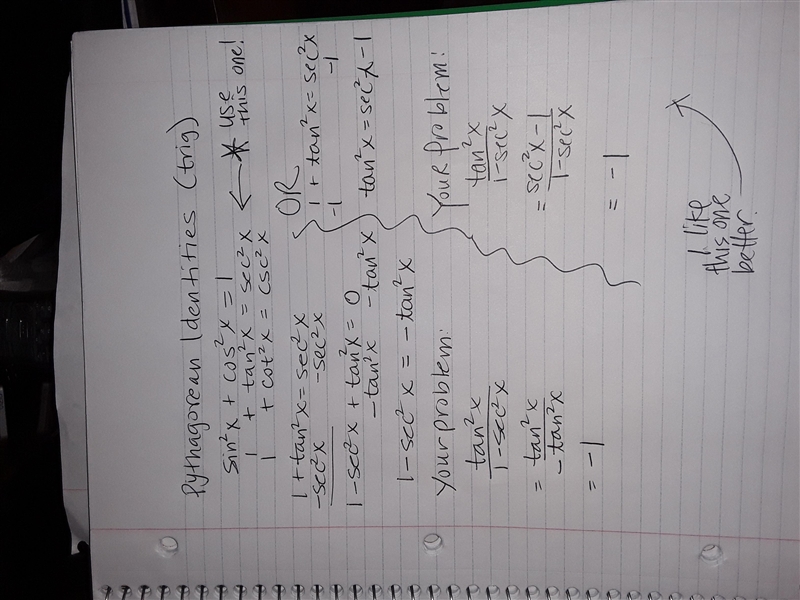 Pythagorean Identities (trig)
sin²x + cos²x = 1
1 + tan²x = sec²x ← * use this one!
1 + cot²x = csc²x
1 + tan²x = sec²x
-sec²x -sec²x
1 - sec²x + tan²x = 0
-tan²x -tan²x
1 - sec²x = -tan²x
Your problem:
tan²x
1 - sec²x
= tan²x
-tan²x
= -1
OR
1 + tan²x = sec²x
-1 -1
tan²x = sec²x - 1
Your problem:
tan²x
1 - sec²x
= sec²x - 1
1 - sec²x
= -1
I like
this one
better.